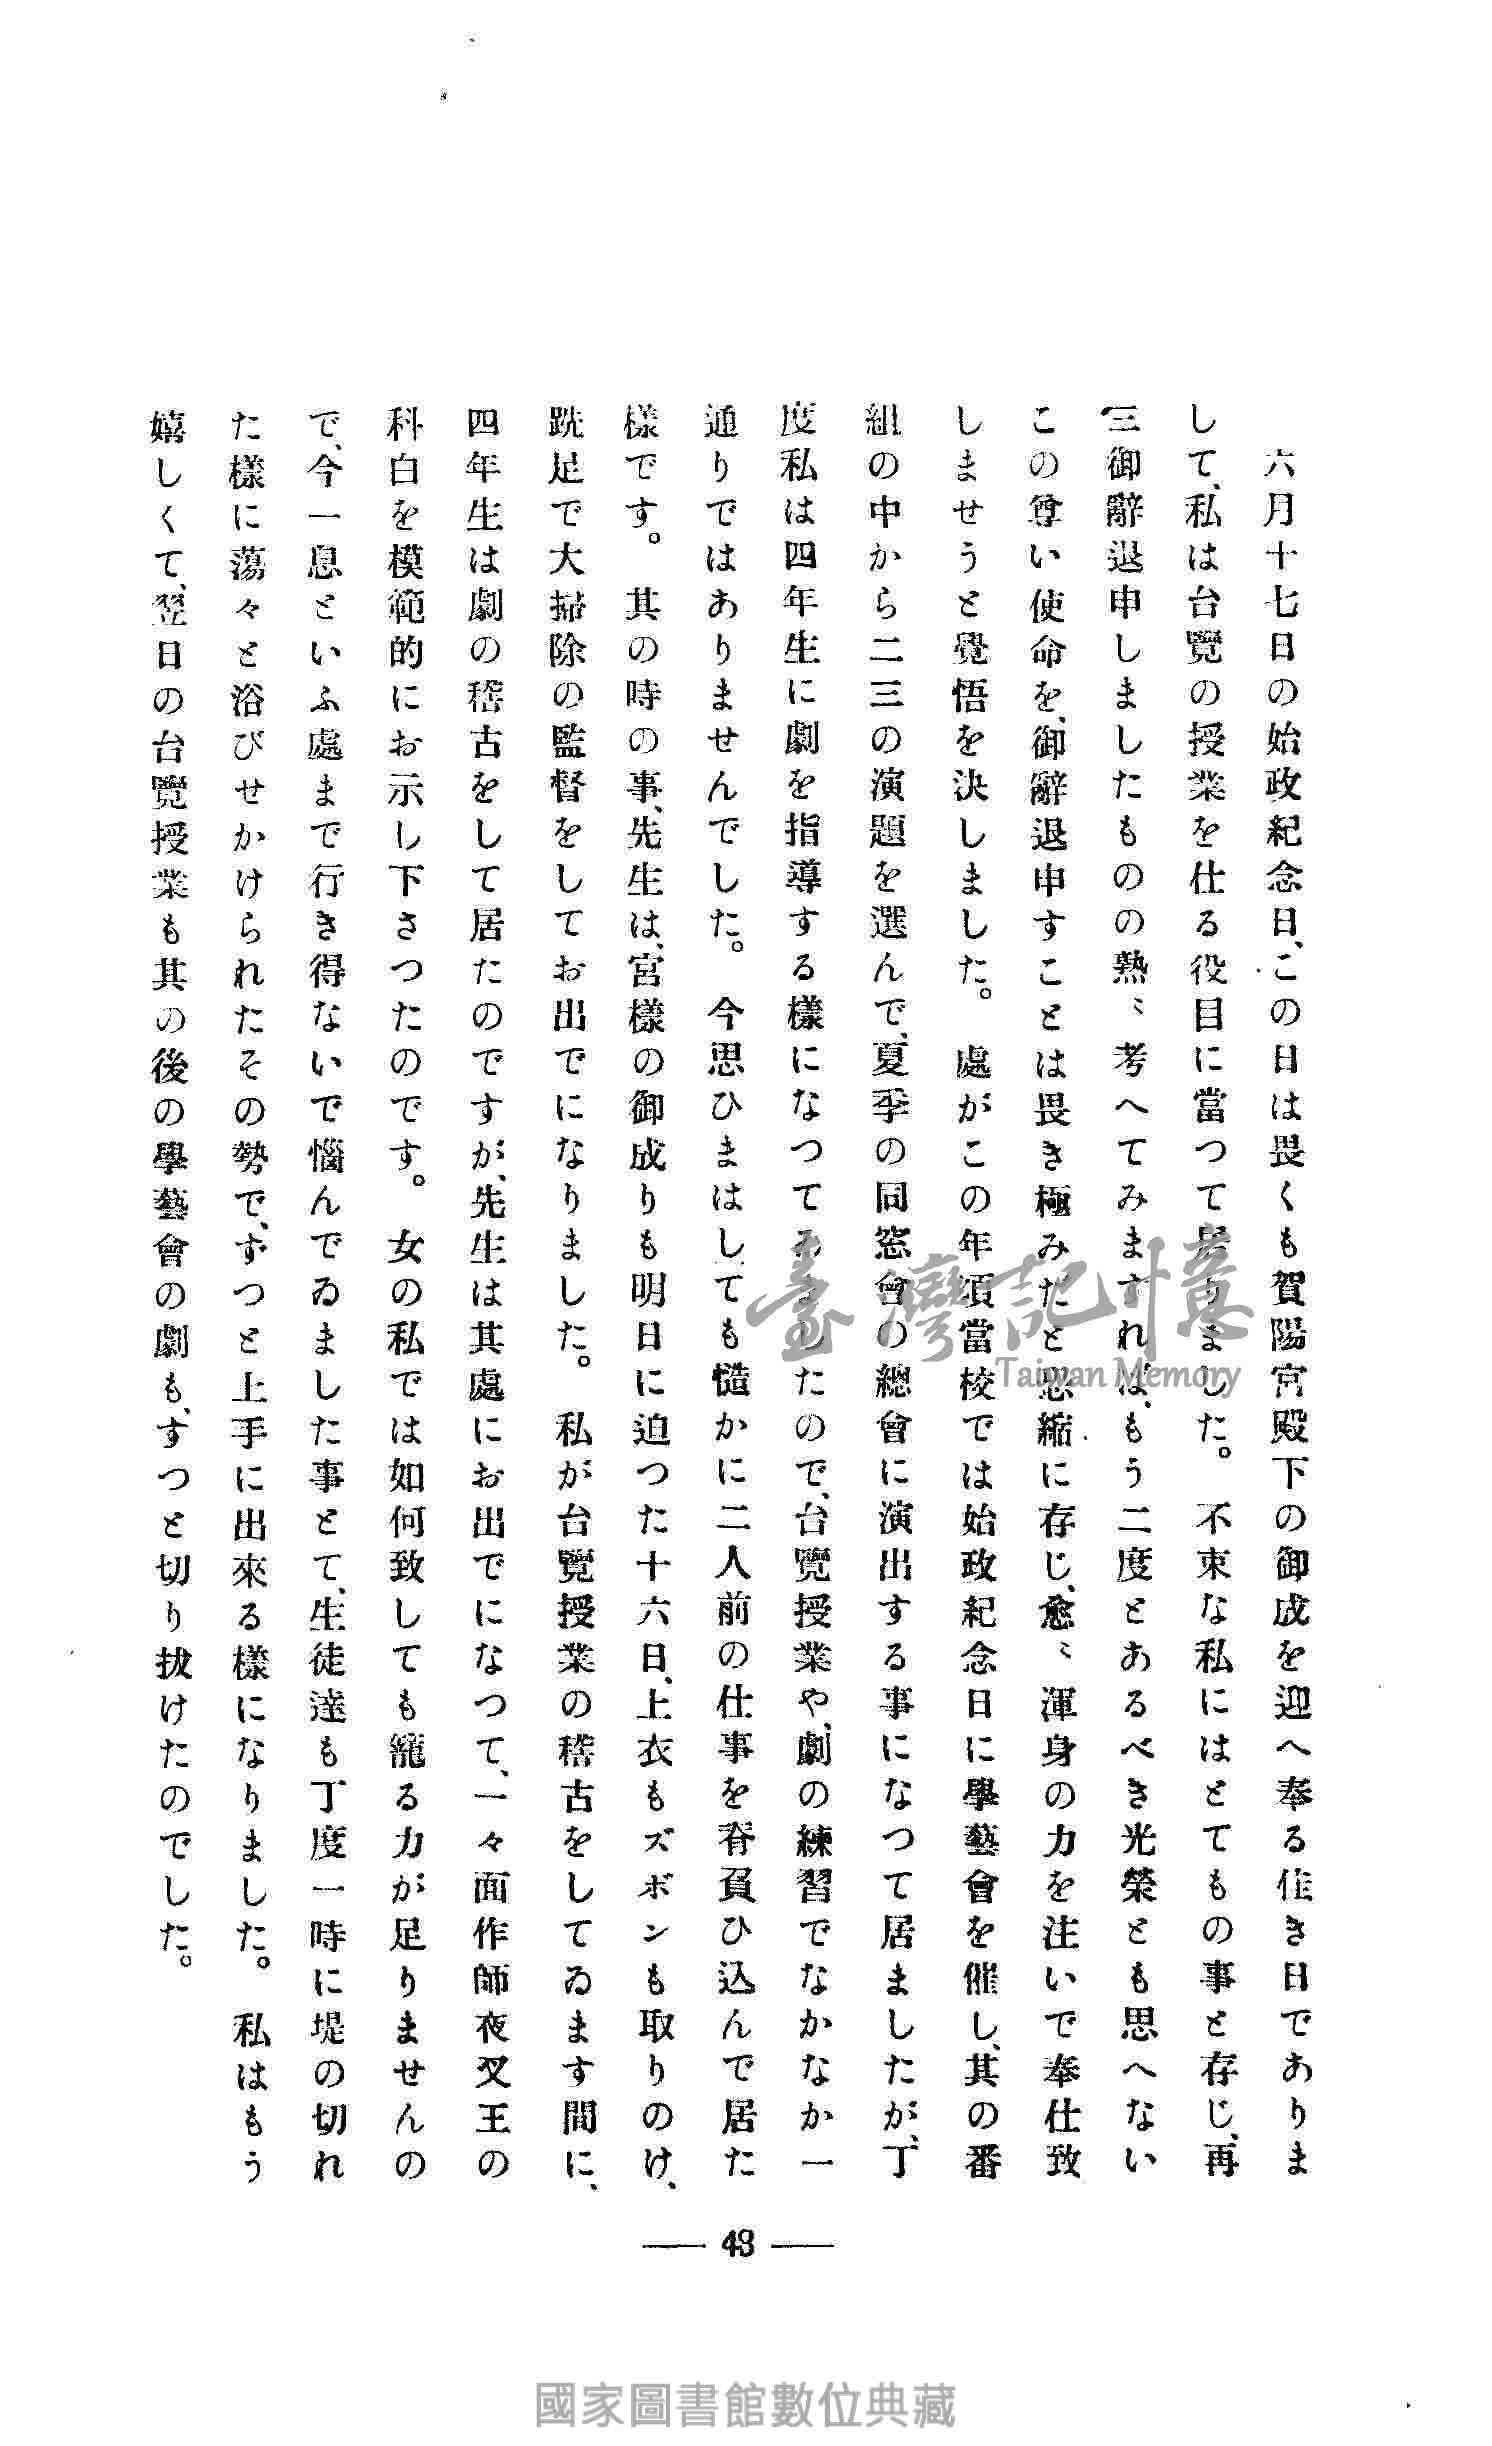 六月十七日の始政紀念日、この日は畏くも賀陽宮殿下の御成を迎へ奉る佳き日でありま
して、私は台覽の授業を仕る役目に當つて居りました。不束な私にはとてもの事と存じ、再
三御辭退申しましたものの熟〻考へてみますれば、もう二度とあるべき光榮とも思へない
この尊い使命を、御辭退申すことは畏き極みだと恐縮に存じ、愈〻渾身の力を注いで奉仕致
しませうと覺悟を決しました。處がこの年頃當校では始政紀念日に學藝會を催し、其の番
組の中から二三の演題を選んで、夏季の同窓會の總會に演出する事になつて居ましたが、丁
度私は四年生に劇を指導する樣になつてゐましたので、台覽授業や、劇の練習でなかなか一
通りではありませんでした。今思ひまはしても慥かに二人前の仕事を脊負ひ込んで居た
樣です。其の時の事、先生は、宮樣の御成りも明日に迫つた十六日、上衣もズボンも取りのけ、
跣足で大掃除の監督をしてお出でになりました。私が台覽授業の稽古をしてゐます間に、
四年生は劇の稽古をして居たのですが、先生は其處にお出でになつて、一々面作師夜叉王の
科白を模範的にお示し下さつたのです。女の私では如何致しても籠る力が足りませんの
で、今一息といふ處まで行き得ないで惱んでゐました事とて、生徒達も丁度一時に堤の切れ
た樣に蕩々と浴びせかけられたその勢で、ずつと上手に出來る樣になりました。私はもう
嬉しくて、翌日の台覽授業も其の後の學藝會の劇も、すつと切り拔けたのでした。
43
臺灣記憶
Taiwan Memory
國家圖書館數位典藏